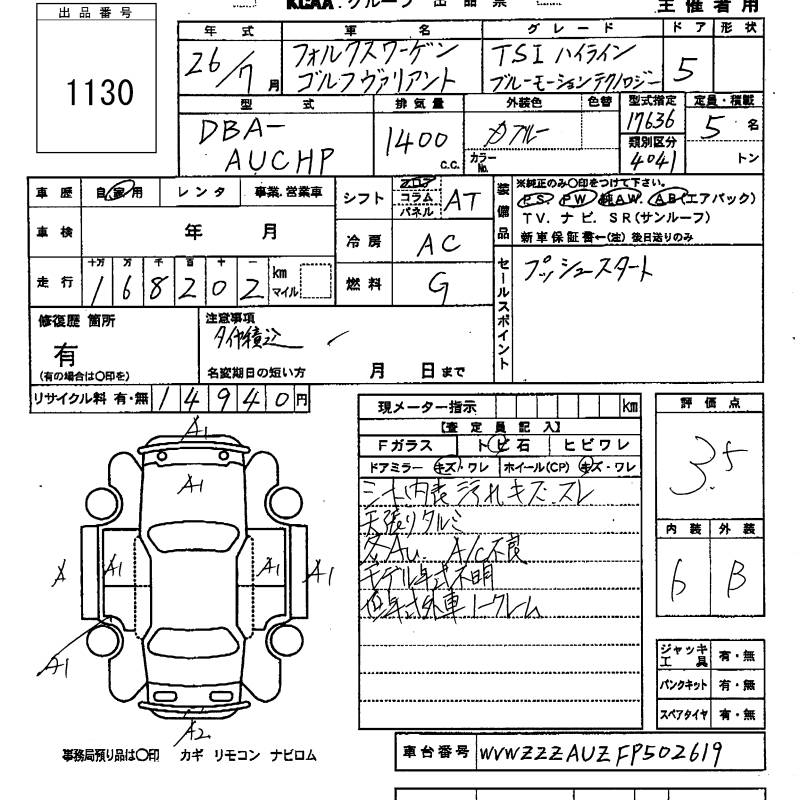 KCAA.グループ 出品票 主催者用
出品番号
1130
年式 車名 グレード ドア 形状
26/7月 フォルクスワーゲン ゴルフヴァリアント TSI ハイライン ブルーモーションテクノロジー 5
型式 排気量 外装色 色替 型式指定 定員・積載
DBA-AUCHP 1400 c.c. カラーNo. 17636 5名
類別区分
4041 トン
車歴 自家用 レンタ 事業.営業車
シフト フロア コラム パネル AT
装備品
※純正のみ〇印をつけて下さい。
PS PW 純AW. AB(エアバック)
TV. ナビ. SR(サンルーフ)
新車保証書←(注)後日送りのみ
車検 年 月
冷房 AC
走行 十万 万 千 百 十 一
168202 km マイル
燃料 G
セールスポイント
プッシュスタート
修復歴 箇所
有
(有の場合は〇印を)
注意事項
タイヤ積込
名変期日の短い方 月 日まで
リサイクル料 有・無 14940円
現メーター指示 km
【査定員記入】
Fガラス トビ石 ヒビワレ
ドアミラー キズ・ワレ ホイール(CP) キズ・ワレ
シート内装汚れキズ・スレ
天張りタルミ
各AU. A/C不良
モデル年式不明
但年式外車ノークレーム
評価点
3.5
内装 外装
6 B
A1
A1
A A1 A1 A1
A1
A2
ジャッキ工具 有・無
パンクキット 有・無
スペアタイヤ 有・無
事務局預り品は〇印 カギ リモコン ナビロム
車台番号 WVWZZZAUZFP502619